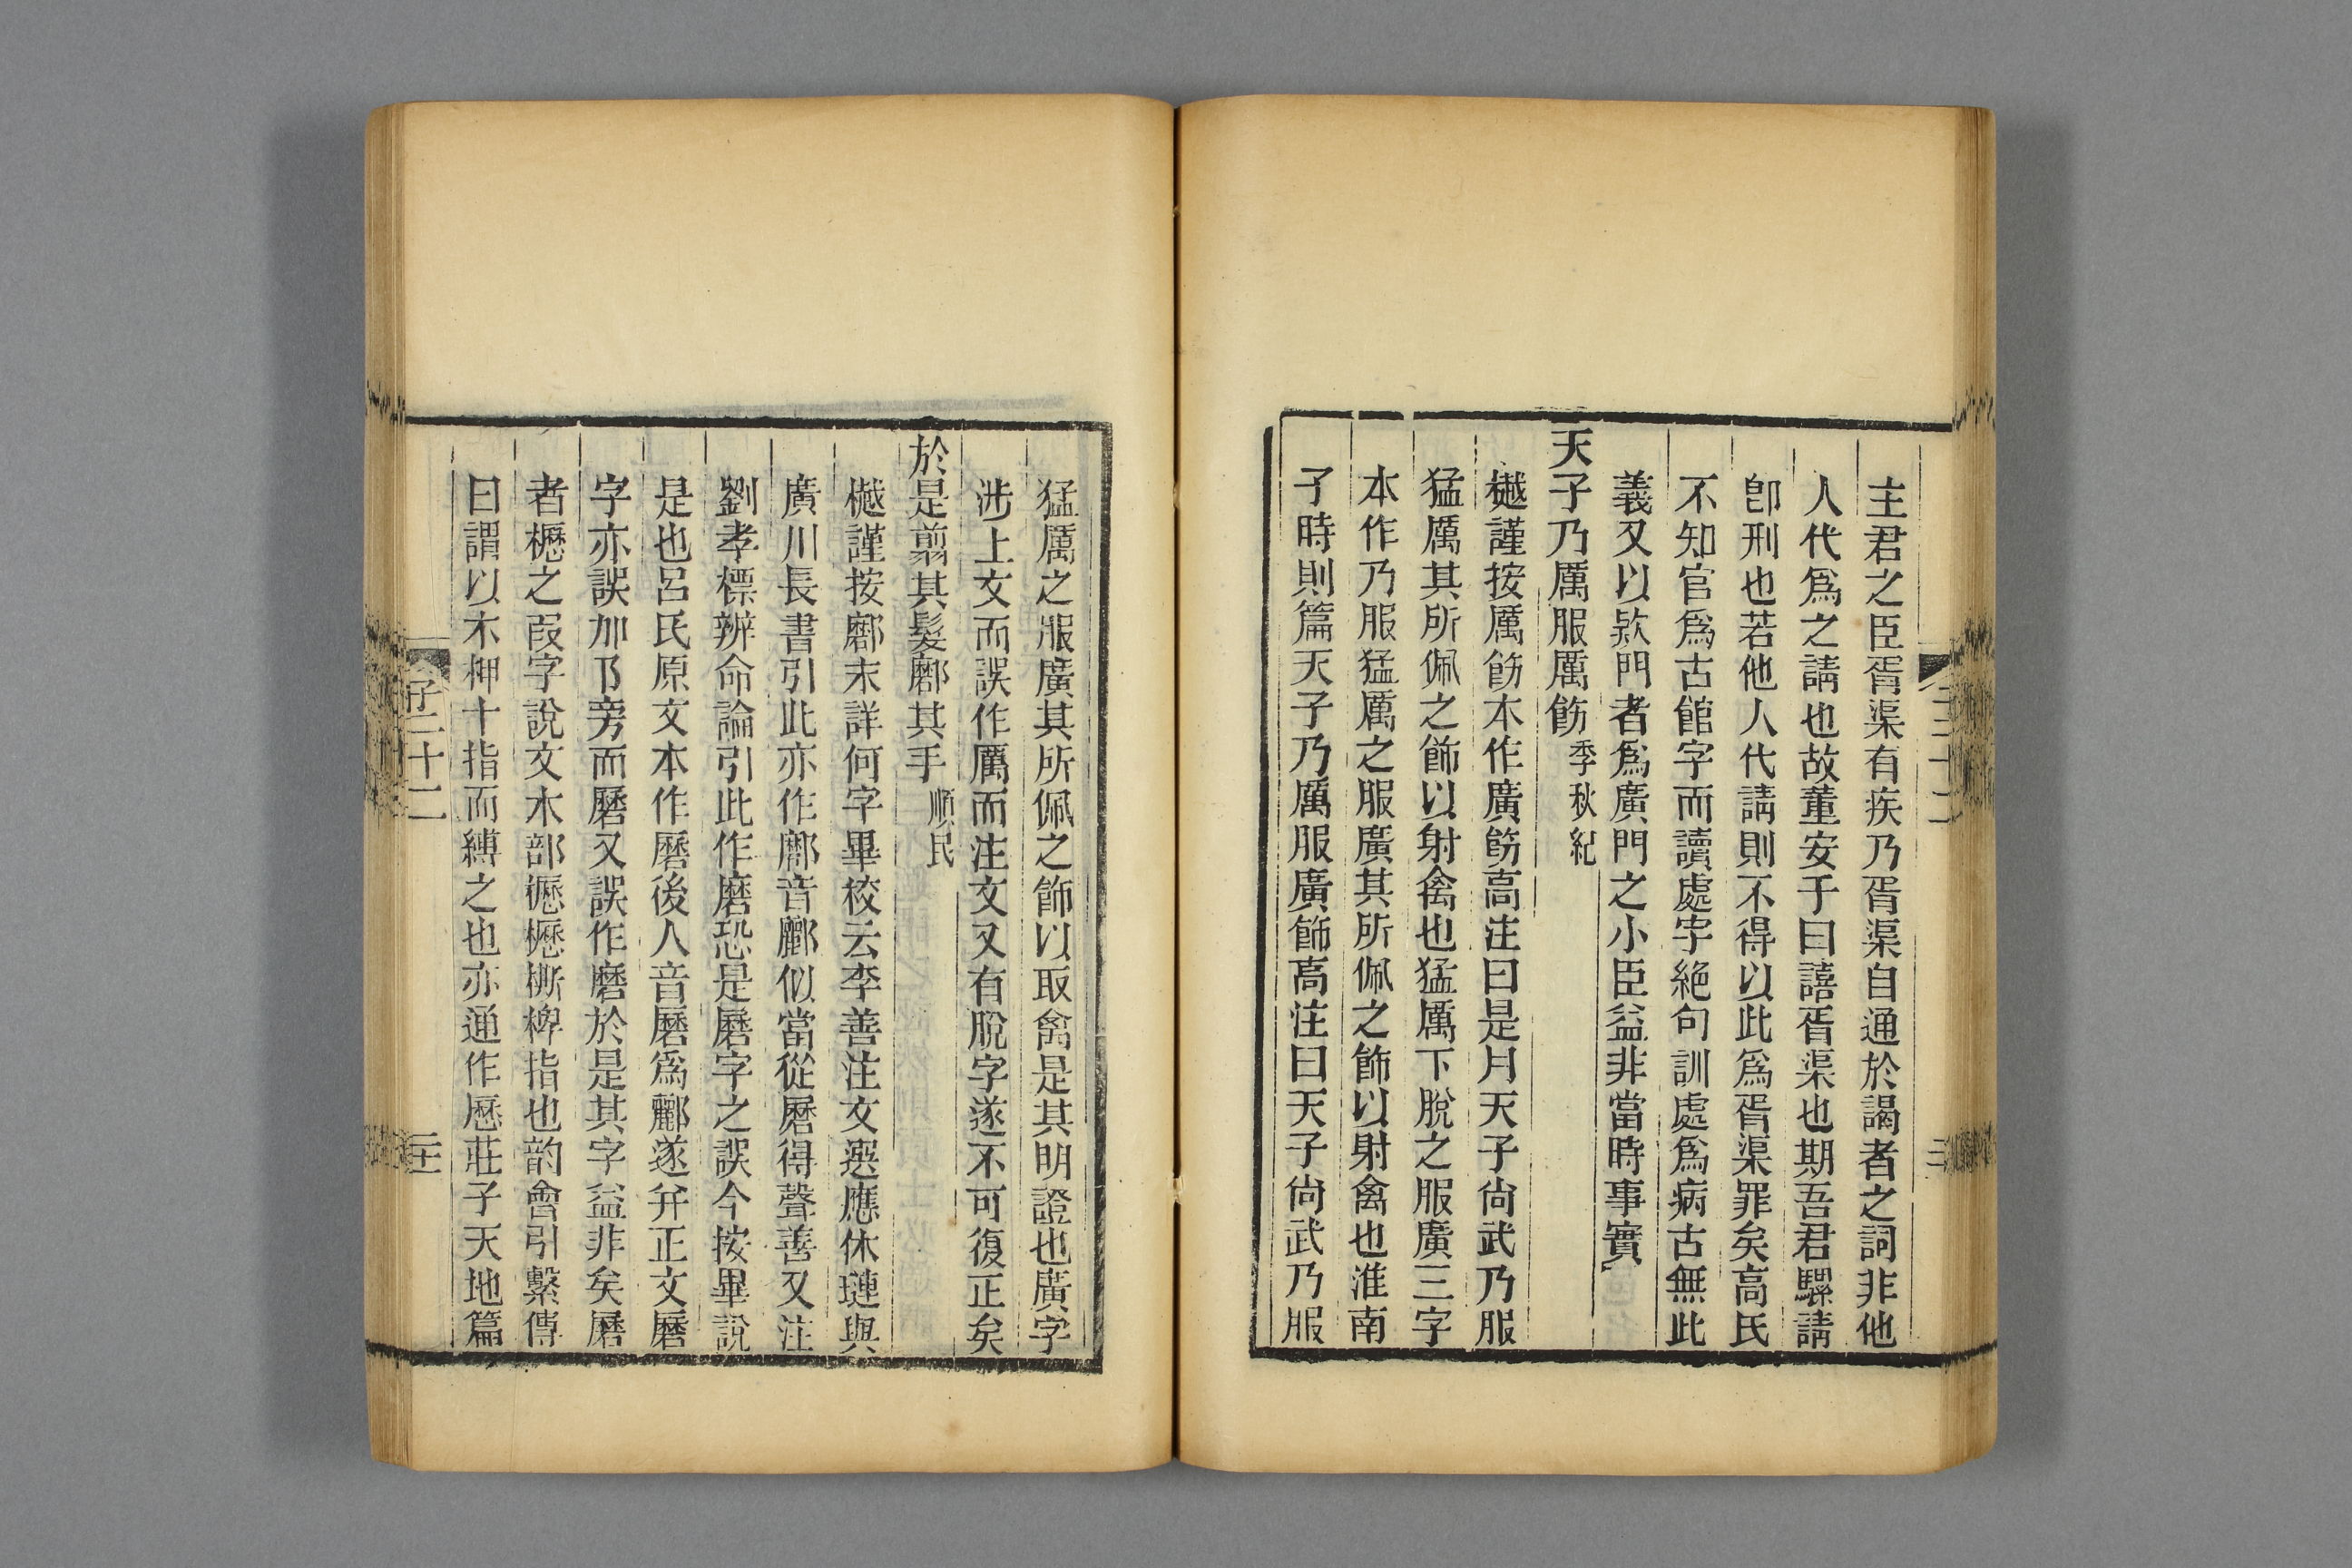 主君之臣胥渠有疾乃胥渠自通於謁者之詞非他
人代爲之請也故董安于曰譆胥渠也期吾君騾請
卽刑也若他人代請則不得以此爲胥渠罪矣高氏
不知官爲古館字而讀處字絶句訓處爲病古無此
義又以欵門者爲廣門之小臣益非當時事實
天子乃厲服厲飭季秋紀
樾謹按厲飭本作廣飭高注曰是月天子尙武乃服
猛厲其所佩之飾以射禽也猛厲下脫之服廣三字
本作乃服猛厲之服廣其所佩之飾以射禽也淮南
子時則篇天子乃厲服廣飾高注曰天子尙武乃服
猛厲之服廣其所佩之飾以取禽是其明證也廣字
涉上文而誤作厲而注文又有脫字遂不可復正矣
於是翦其髮𨟖其手順民
樾謹按𨟖未詳何字畢校云李善注文選應休璉與
廣川長書引此亦作𨟖音酈似當從磿得聲善又注
劉孝標辨命論引此作磨恐是磿字之誤今按畢說
是也呂氏原文本作磿後人音磿爲酈遂幷正文磿
字亦誤加卩旁而磿又誤作磨於是其字益非矣磿
者櫪之叚字說文木部櫪櫪㯕椑指也韵會引繫傳
曰謂以木柙十指而縛之也亦通作歷莊子天地篇
子二十二